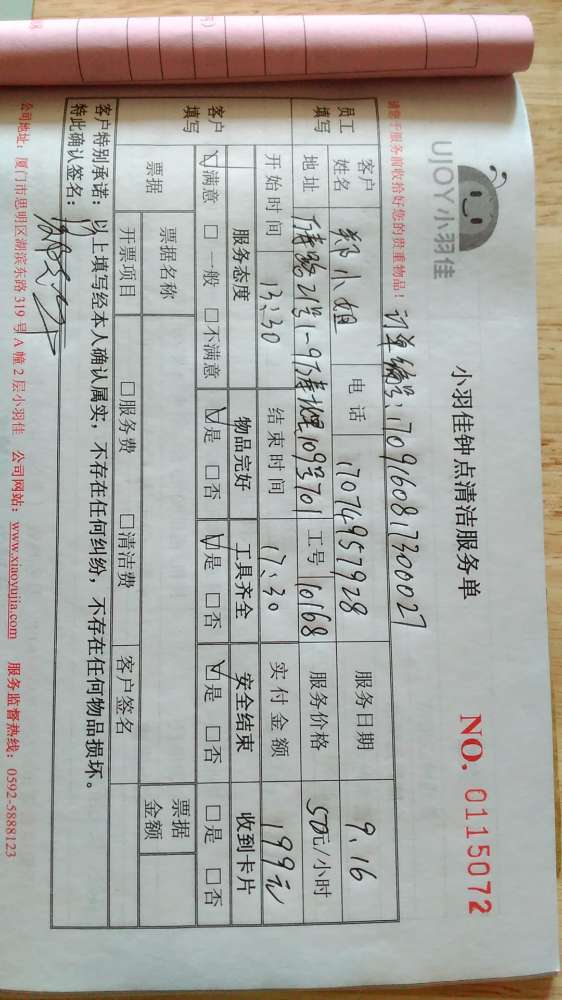 UJOY小羽佳
小羽佳钟点清洁服务单
NO. 0115072
请您于服务前收拾好您的贵重物品!
订单编号:1709160817300027
员工填写
客户姓名 郑小姐 电话 17074957928 服务日期 9.16
地址 21号1-9 109号701 工号 10168 服务价格 50元/小时
开始时间 13:30 结束时间 17:30 实付金额 199元
客户填写
服务态度 物品完好 工具齐全 安全结束 收到卡片
☑满意 □一般 □不满意 ☑是 □否 ☑是 □否 ☑是 □否 □是 □否
票据 票据名称 票据金额
开票项目 □服务费 □清洁费 客户签名
客户特别承诺:以上填写经本人确认属实,不存在任何纠纷,不存在任何物品损坏。
特此确认签名:
公司地址:厦门市思明区湖滨东路319号A幢2层小羽佳 公司网站:www.xiaoyujia.com 服务监督热线:0592-5888123